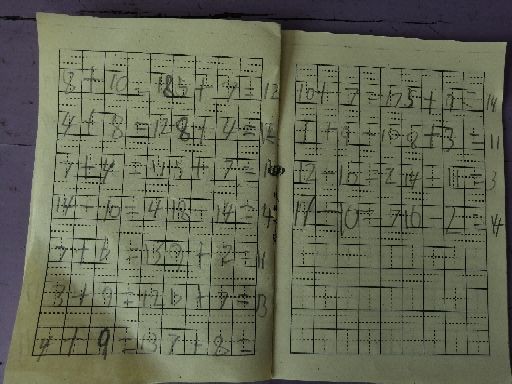 8 + 10 = 18 5 + 7 = 12
4 + 8 = 12 8 + 4 = 12
7 + 4 = 11 5 + 7 =
14 - 10 = 4 18 - 14 = 4
7 + 6 = 13 9 + 2 = 11
3 + 9 = 12 6 + 7 = 13
4 + 9 = 13 7 + 8 =
10 + 7 = 17 5 + 9 = 14
1 + 9 = 10 8 + 3 = 11
12 - 10 = 2 14 - 11 = 3
14 - 10 =